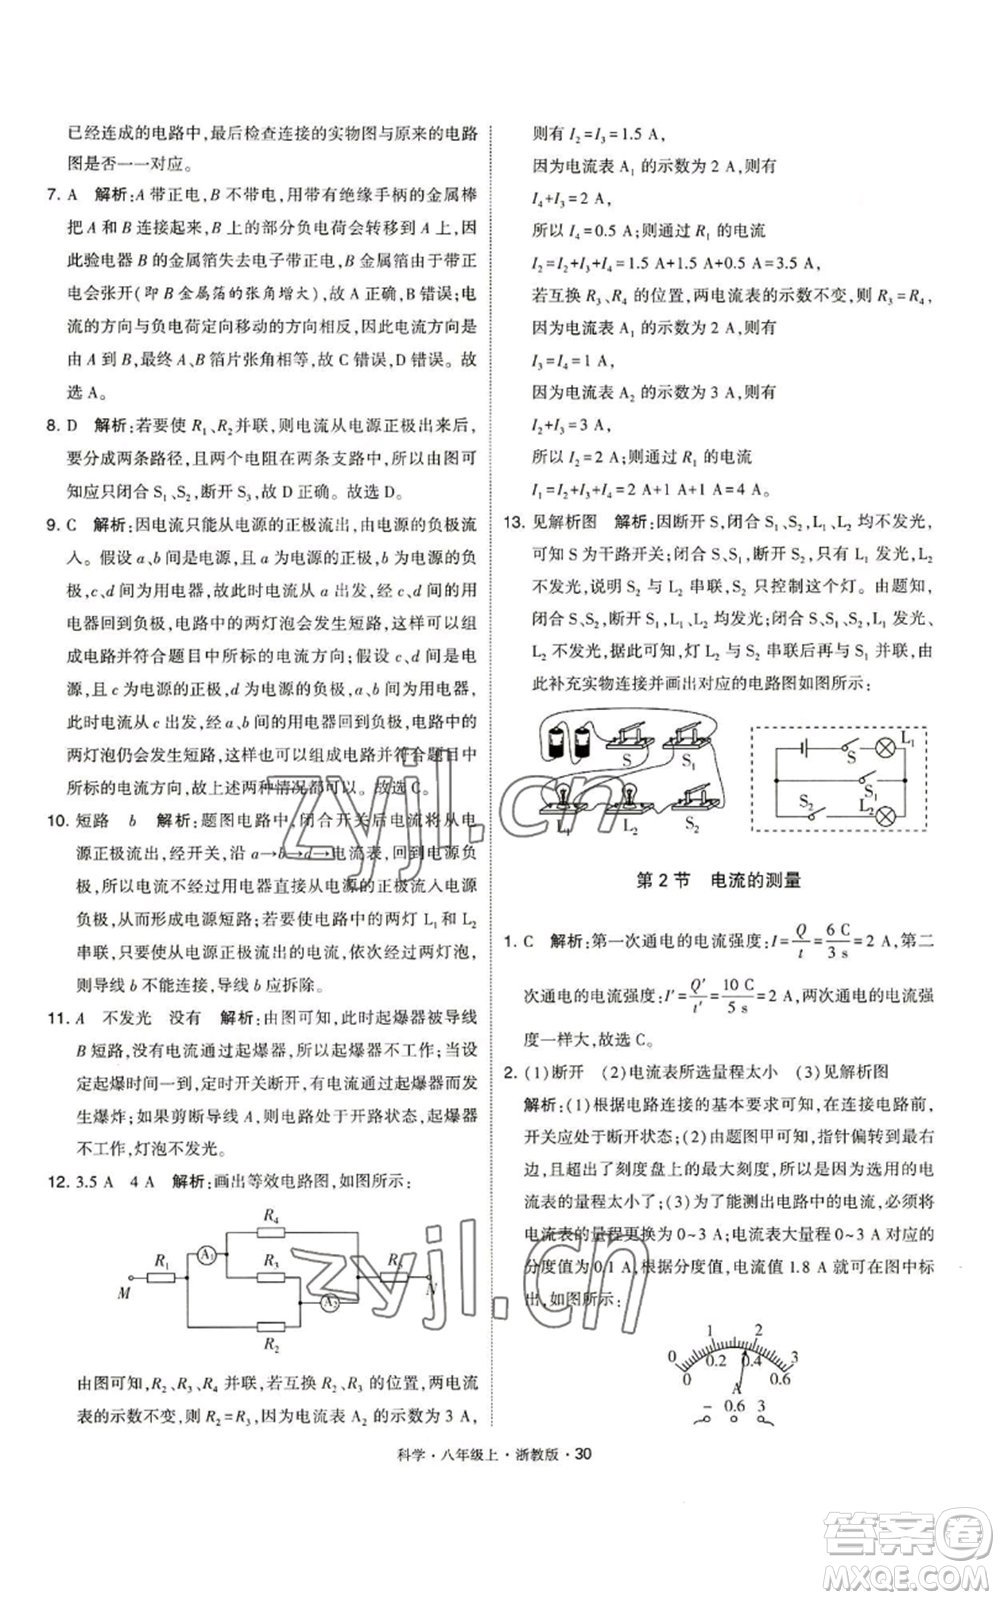 已经连成的电路中,最后检查连接的实物图与原来的电路
图是否一一对应。
7. A 解析:A带正电,B不带电,用带有绝缘手柄的金属棒
把A和B连接起来,B上的部分负电荷会转移到A上,因
此验电器B的金属箔失去电子带正电,其金属箔由于带正
电会张开(即B金属箔的张角增大),故A正确,B错误;电
流的方向与负电荷定向移动的方向相反,因此电流方向是
由A到B,最终A、B箔片张角相等,故C错误,D错误。故
选A。
8. D 解析:若要使R₁、R₂并联,则电流从电源正极出来后,
要分成两条路径,且两个电阻在两条支路中,所以由图可
知应只闭合S₁、S₂,断开S₃,故D正确。故选D。
9. C 解析:因电流只能从电源的正极流出,由电源的负极流
入。假设a、b间是电源,a为电源的正极,b为电源的负
极,c、d间为用电器,故此时电流从a出发,已经不经过用
电器回到负极,电路中的两灯泡会发生短路,故不可以组
成电路并符合题目中所标的电流方向;假设c、d间是电
源,且c为电源的正极,d为电源的负极,a、b间为用电器,
此时电流从c出发,经a、b间的用电器回到负极,电路中的
两灯泡仍会发生短路,这样也可以组成电路并符合题目中
所标的电流方向,故上述两种情况都可以。故选C。
10. 短路 b 解析:题图电路中,闭合开关后电流将从电
源正极流出,经开关,沿a→b→d→电流表,回到电源负
极,这样没有经过用电器而将电源的正极流入电源
负极,从而形成电源短路;若要使电路中的两灯L₁和L₂
串联,只要使从电源正极流出的电流,依次经过两灯泡,
则导线b不能连接,导线b应拆除。
11. A 不发光 没有 解析:由图可知,此时起爆器被导线
B短路,没有电流通过起爆器,所以起爆器不工作;当设
定起爆时间一到,定时开关断开,起爆器与灯泡串联,发
生爆炸;如果剪断导线A,则电路处于开路状态,起爆器
不工作,灯泡不发光。
12. 3.5 A 4 A 解析:画出等效电路图,如图所示:
R₄
R₁ A₁ R₃ R₅
M A₂ N
R₂
由图可知,R₂、R₃、R₄并联,若互换R₂、R₃的位置,两电流
表的示数不变,则R₂=R₃,因为电流表A₂的示数为3 A,
则有I₂=I₃=1.5 A,
因为电流表A₁的示数为2 A,则有
I₄+I₃=2 A,
所以I₄=0.5 A;则通过R₁的电流
I₁=I₂+I₃+I₄=1.5 A+1.5 A+0.5 A=3.5 A,
若互换R₃、R₄的位置,两电流表的示数不变,则R₃=R₄,
因为电流表A₁的示数为2 A,则有
I₃=I₄=1 A,
因为电流表A₂的示数为3 A,则有
I₂+I₃=3 A,
所以I₂=2 A;则通过R₁的电流
I₁=I₂+I₃+I₄=2 A+1 A+1 A=4 A。
13. 见解析图 解析:因断开S,闭合S₁、S₂,L₁、L₂均不发光,
可知S为干路开关;闭合S、S₁,断开S₂,只有L₁发光,L₂
不发光,说明S₂与L₂串联,S₂只控制这个灯。由题知,
闭合S、S₂,断开S₁,L₁、L₂均发光;闭合S、S₁,L₁发光、
L₂不发光,据此可知,灯L₂与S₂串联后再与S₁并联,由
此补充实物连接并画出对应的电路图如图所示:
S S₁
L₁ L₂ S₂
S L₁
S₁
S₂ L₂
第2节 电流的测量
1. C 解析:第一次通电的电流强度:I=Q/t=6 C/3 s=2 A,第二
次通电的电流强度:I′=Q′/t′=10 C/5 s=2 A,两次通电的电流强
度一样大,故选C。
2. (1)断开 (2)电流表所选量程太小 (3)见解析图
解析:(1)根据电路连接的基本要求可知,在连接电路前,
开关应处于断开状态;(2)由题图甲可知,指针偏转到最右
端,超出了刻度盘上的最大刻度,这说明实验所选用的电
流表的量程太小了;(3)为了能测出电路中的电流,必须将
电流表的量程更换为0~3 A;电流表大量程0~3 A对应的
分度值为0.1 A,根据分度值、电流值1.8 A就可在图中标
出,如图所示:
0 1 2 3
0 0.2 0.4 0.6
A
- 0.6 3
科学·八年级上·浙教版·30
zyjl.cn
zyjl.cn
答案圈
MXQE.COM